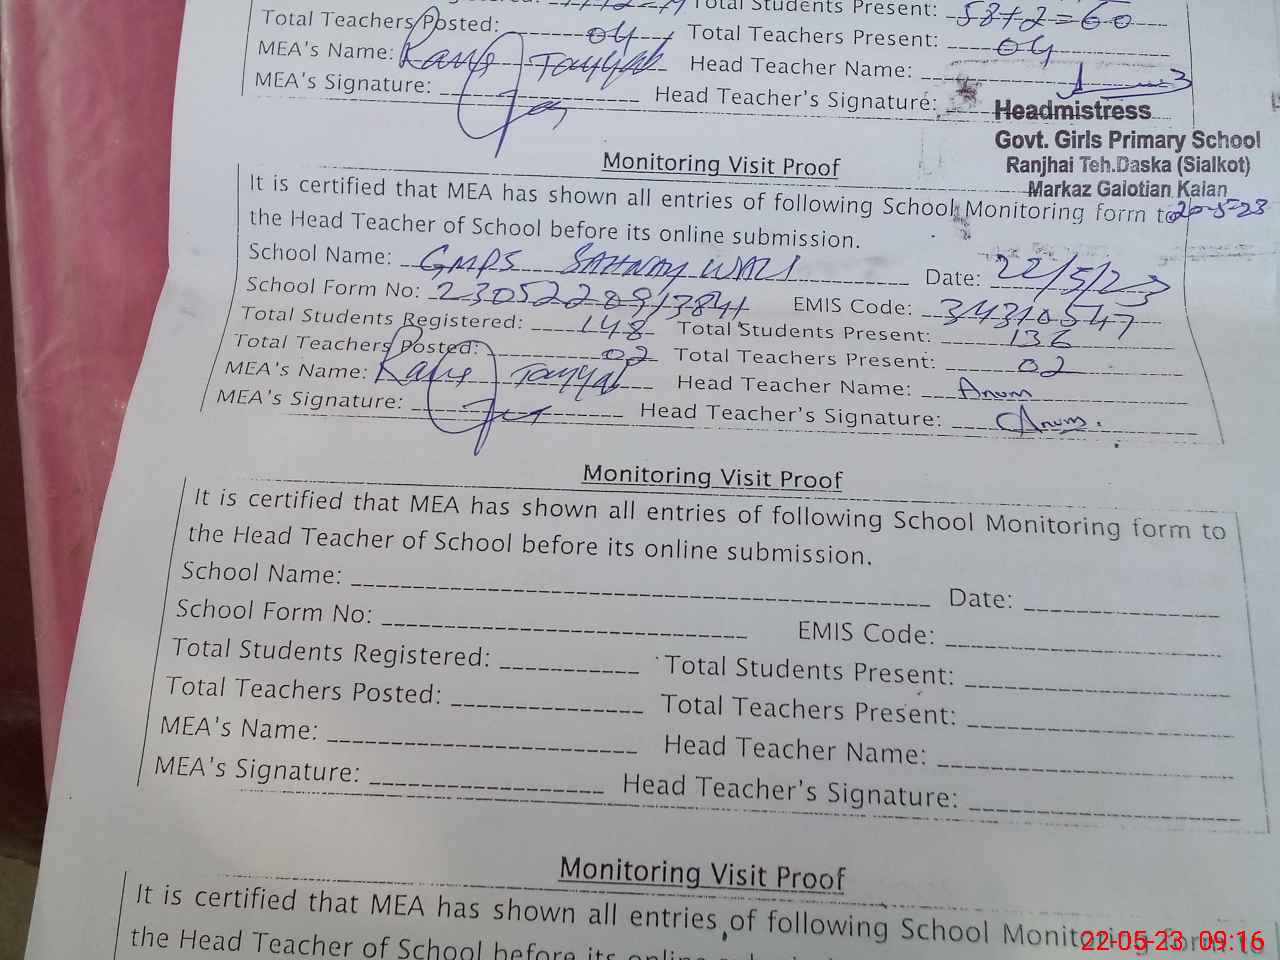 Total Students Present: 58+2=60
Total Teachers Posted: 04 Total Teachers Present: 04
MEA's Name: Tayyab Head Teacher Name:
MEA's Signature: Head Teacher's Signature:
Headmistress
Govt. Girls Primary School
Ranjhai Teh.Daska (Sialkot)
Markaz Galotian Kalan
Monitoring Visit Proof
It is certified that MEA has shown all entries of following School Monitoring form to
the Head Teacher of School before its online submission.
School Name: GMPS Date: 22/5/23
School Form No: EMIS Code: 34310547
Total Students Registered: 148 Total Students Present: 136
Total Teachers Posted: 02 Total Teachers Present: 02
MEA's Name: Tayyab Head Teacher Name: Anum
MEA's Signature: Head Teacher's Signature: Anum.
Monitoring Visit Proof
It is certified that MEA has shown all entries of following School Monitoring form to
the Head Teacher of School before its online submission.
School Name: Date:
School Form No: EMIS Code:
Total Students Registered: Total Students Present:
Total Teachers Posted: Total Teachers Present:
MEA's Name: Head Teacher Name:
MEA's Signature: Head Teacher's Signature:
Monitoring Visit Proof
It is certified that MEA has shown all entries of following School Monitoring form to
the Head Teacher of School before its online
22-05-23 09:16